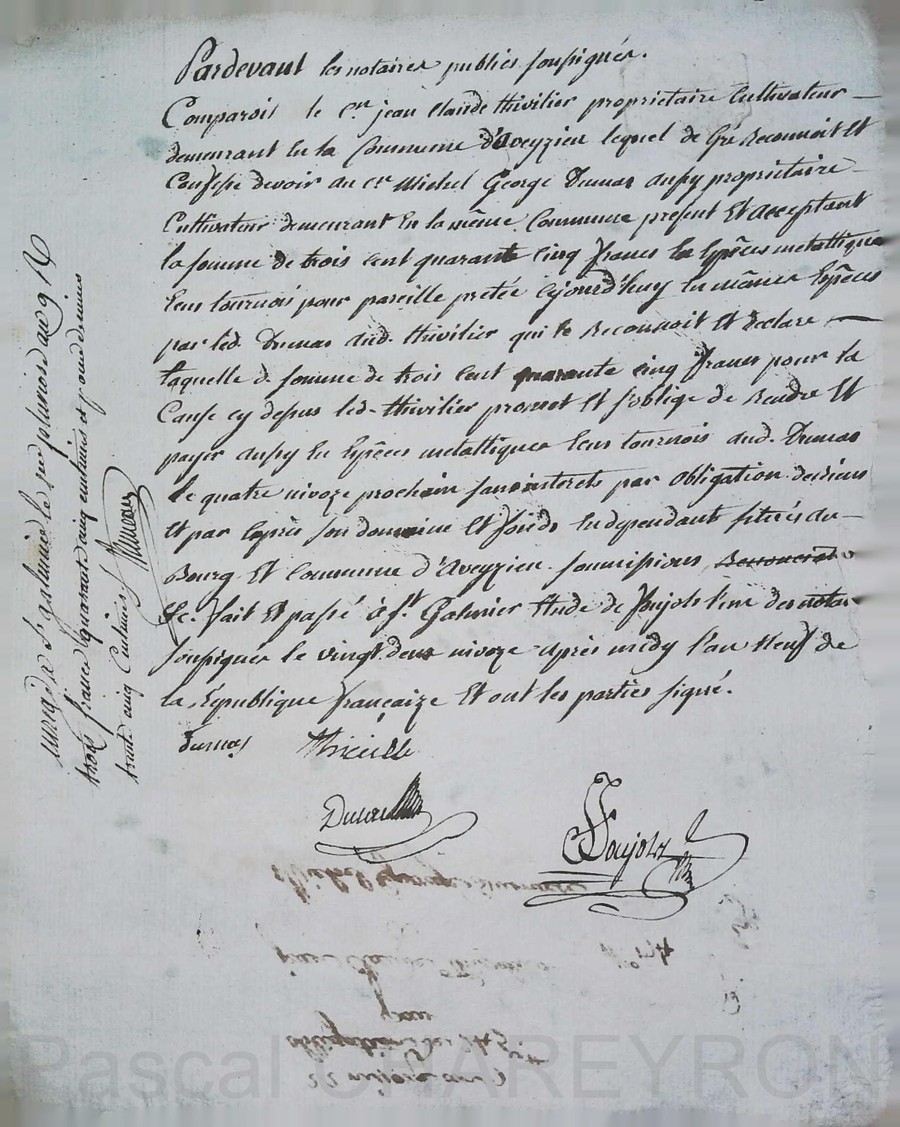 Pardevant les notaires publics soussignés.
Comparoit le Cen jean Claude thivilier proprietaire Cultivateur
demeurant En la Commune d'aveyzieu lequel de Gré Reconnoit Et
Confesse devoir au cen Michel George Dumas aussy proprietaire
Cultivateur demeurant En la même Commune present Et acceptant
la somme de trois cent quarante cinq francs En Espèces metalliques
Cens tournois pour pareille pretée cejourd'huy En mêmes Espèces
par led. Dumas aud. thivilier qui le Reconnoit Et declare
laquelle d. somme de trois Cent quarante cinq francs pour la
Cause cy depus led. thivilier promet Et s'oblige de Rendre Et
payer aussy En Espèces metalliques Cens tournois aud. Dumas
le quatre nivoze prochain sans interets par obligation de biens
Et par Exprès son domaine Et fonds En dependant situés au
Bourg Et Commune d'Aveyzieu. soumissions
&c. fait Et passé à st. Galmier Etude de Soujols l'un des notai
soussignés le vingt deux nivoze après midy l'an Neuf de
la Republique françaize Et ont les parties signé.
Dumas thivillie
Soujols
Enregé a St galmié le pluviose an 9 R
trois francs quarante cinq centimes et pour decimes
trente cinq Centimes
Michel george dumas
jean Claude thivilier
par
obligation de 345 ft
22 nivoze an 9